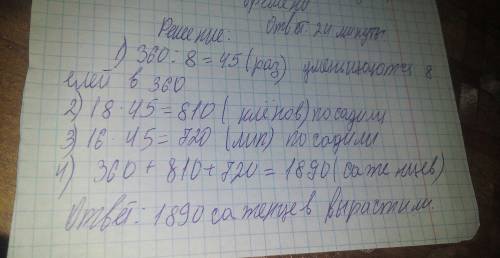 времени
Решение: Ответ: 24 минуты
1) 360:8=45 (раз) уменищаются 8
елей в 360
2) 18·45=810 (клёнов) посадили
3) 16·45=720 (лип) посадили
4) 360+810+720=1890 (саженцев)
Ответ: 1890 саженцев вырастили.